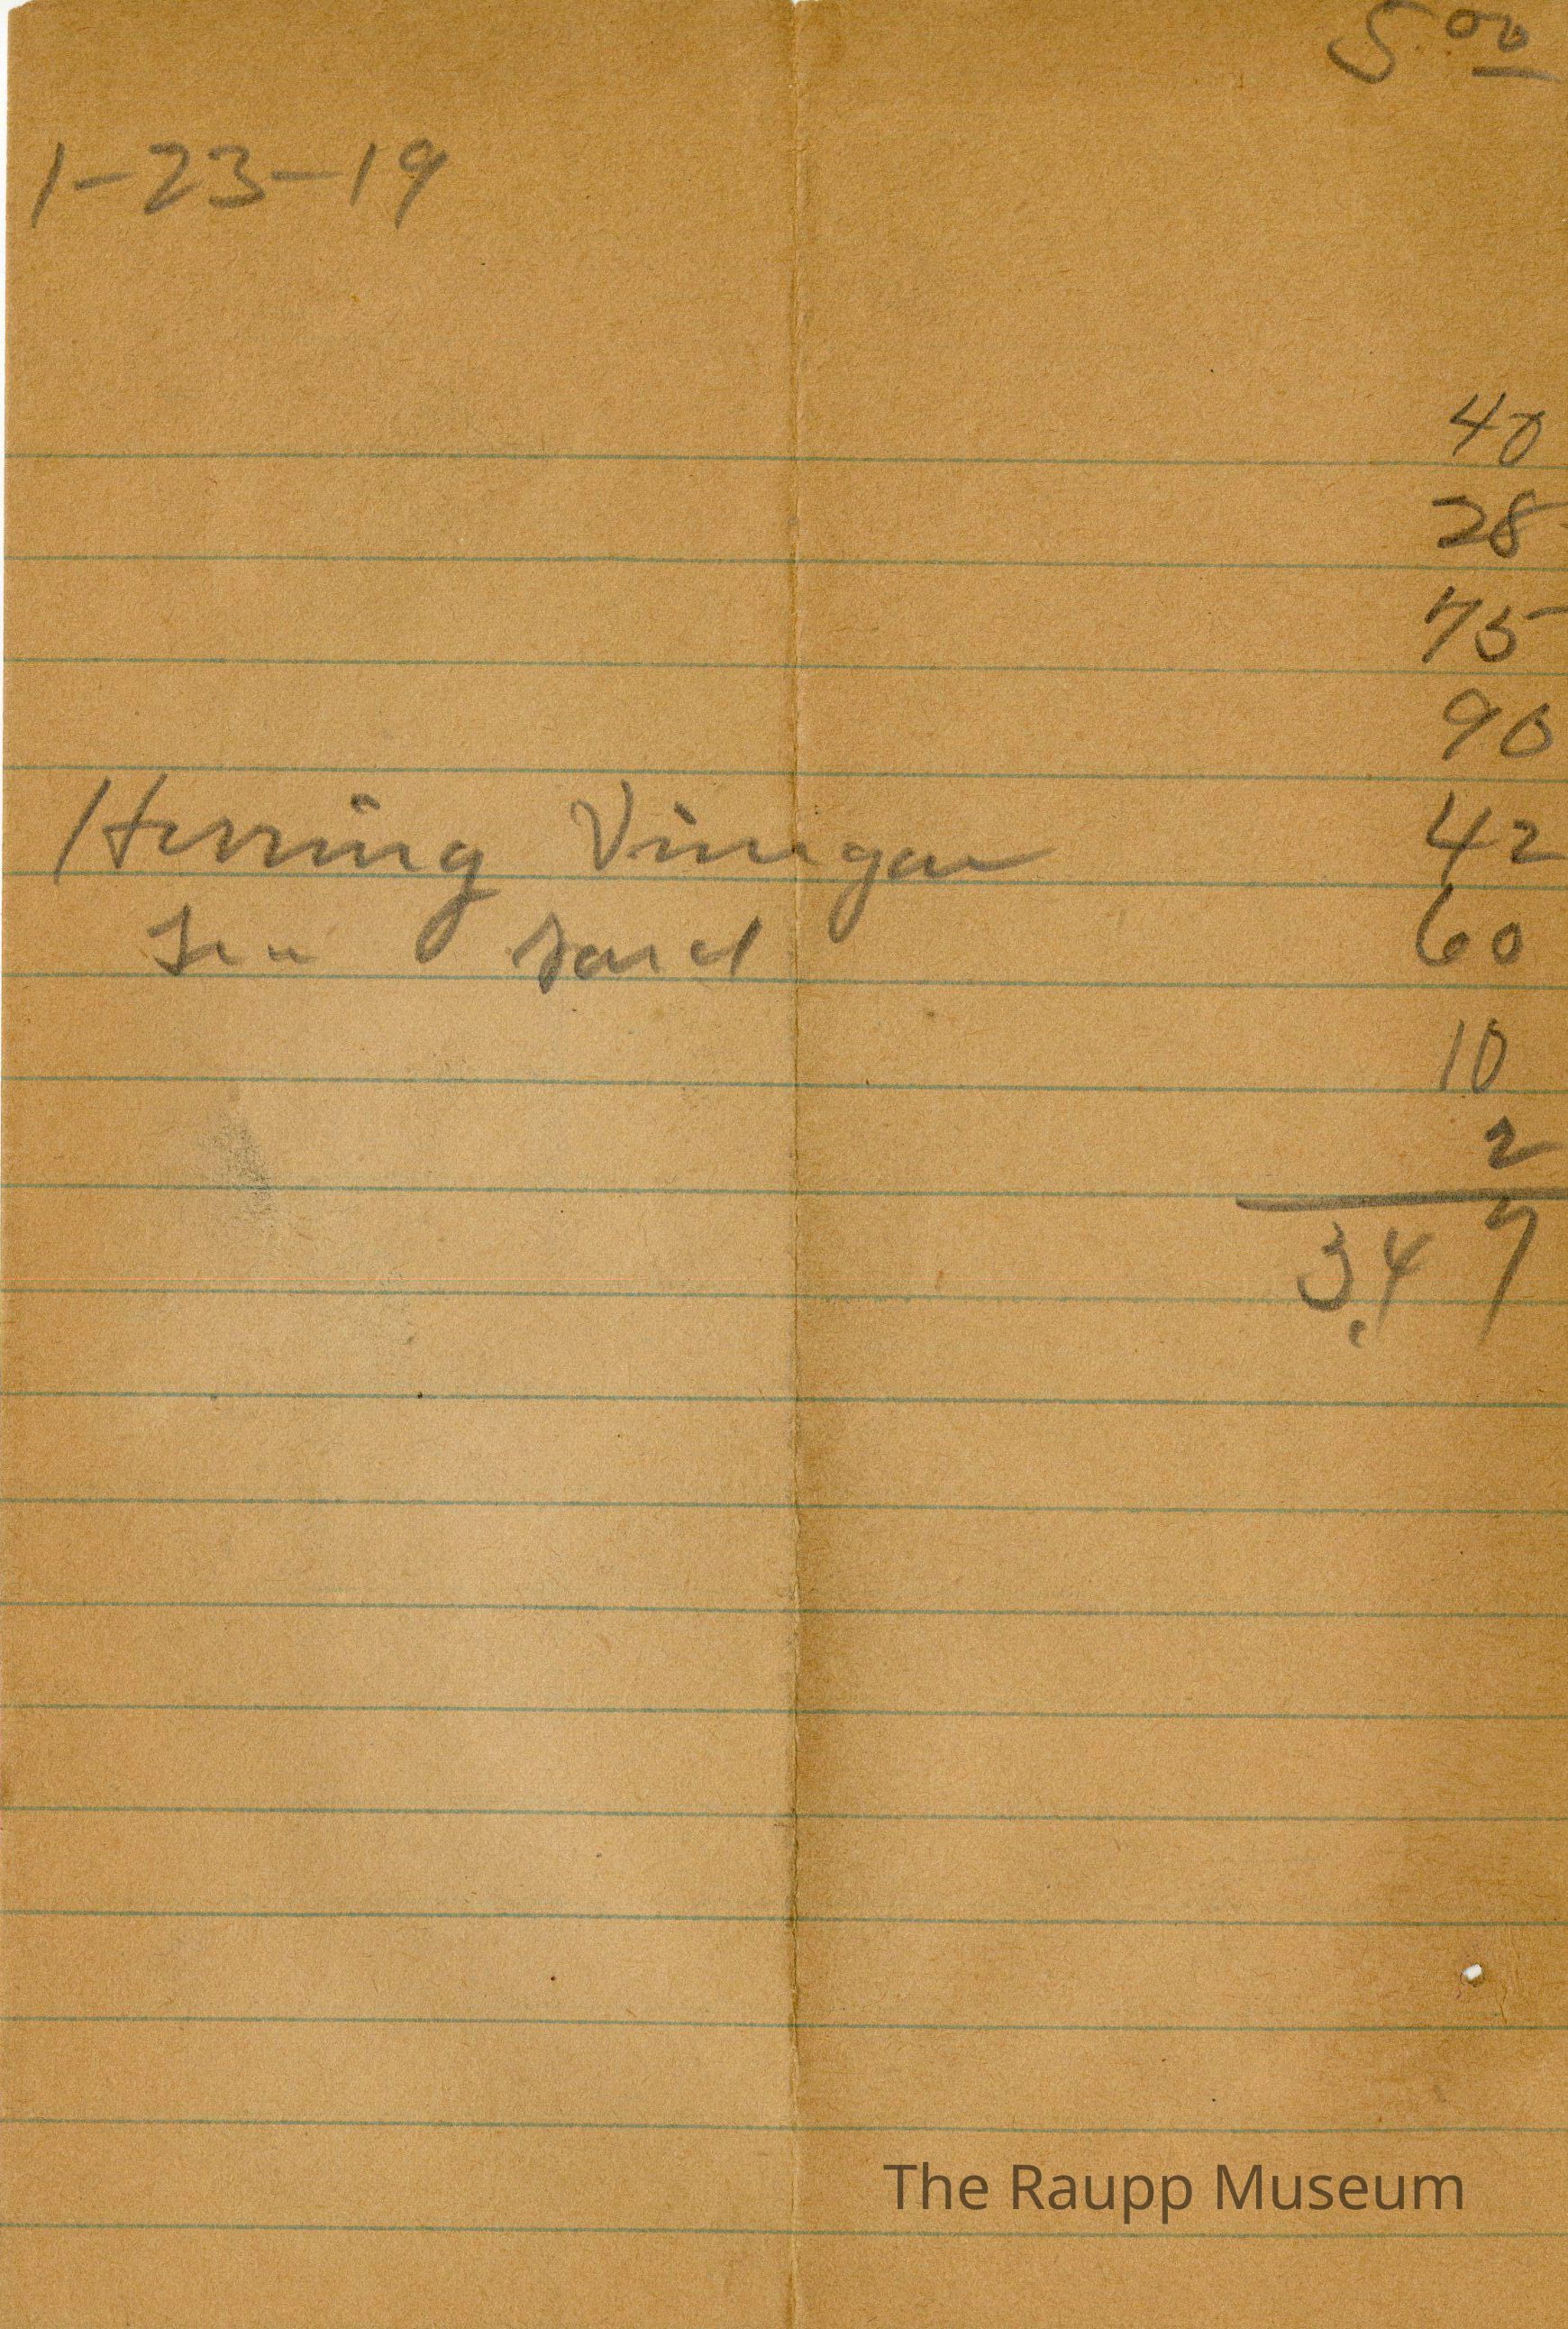 5.00
1-23-19
40
28
75
90
Herring Vinegar 42
60
10
2
3.47
The Raupp Museum